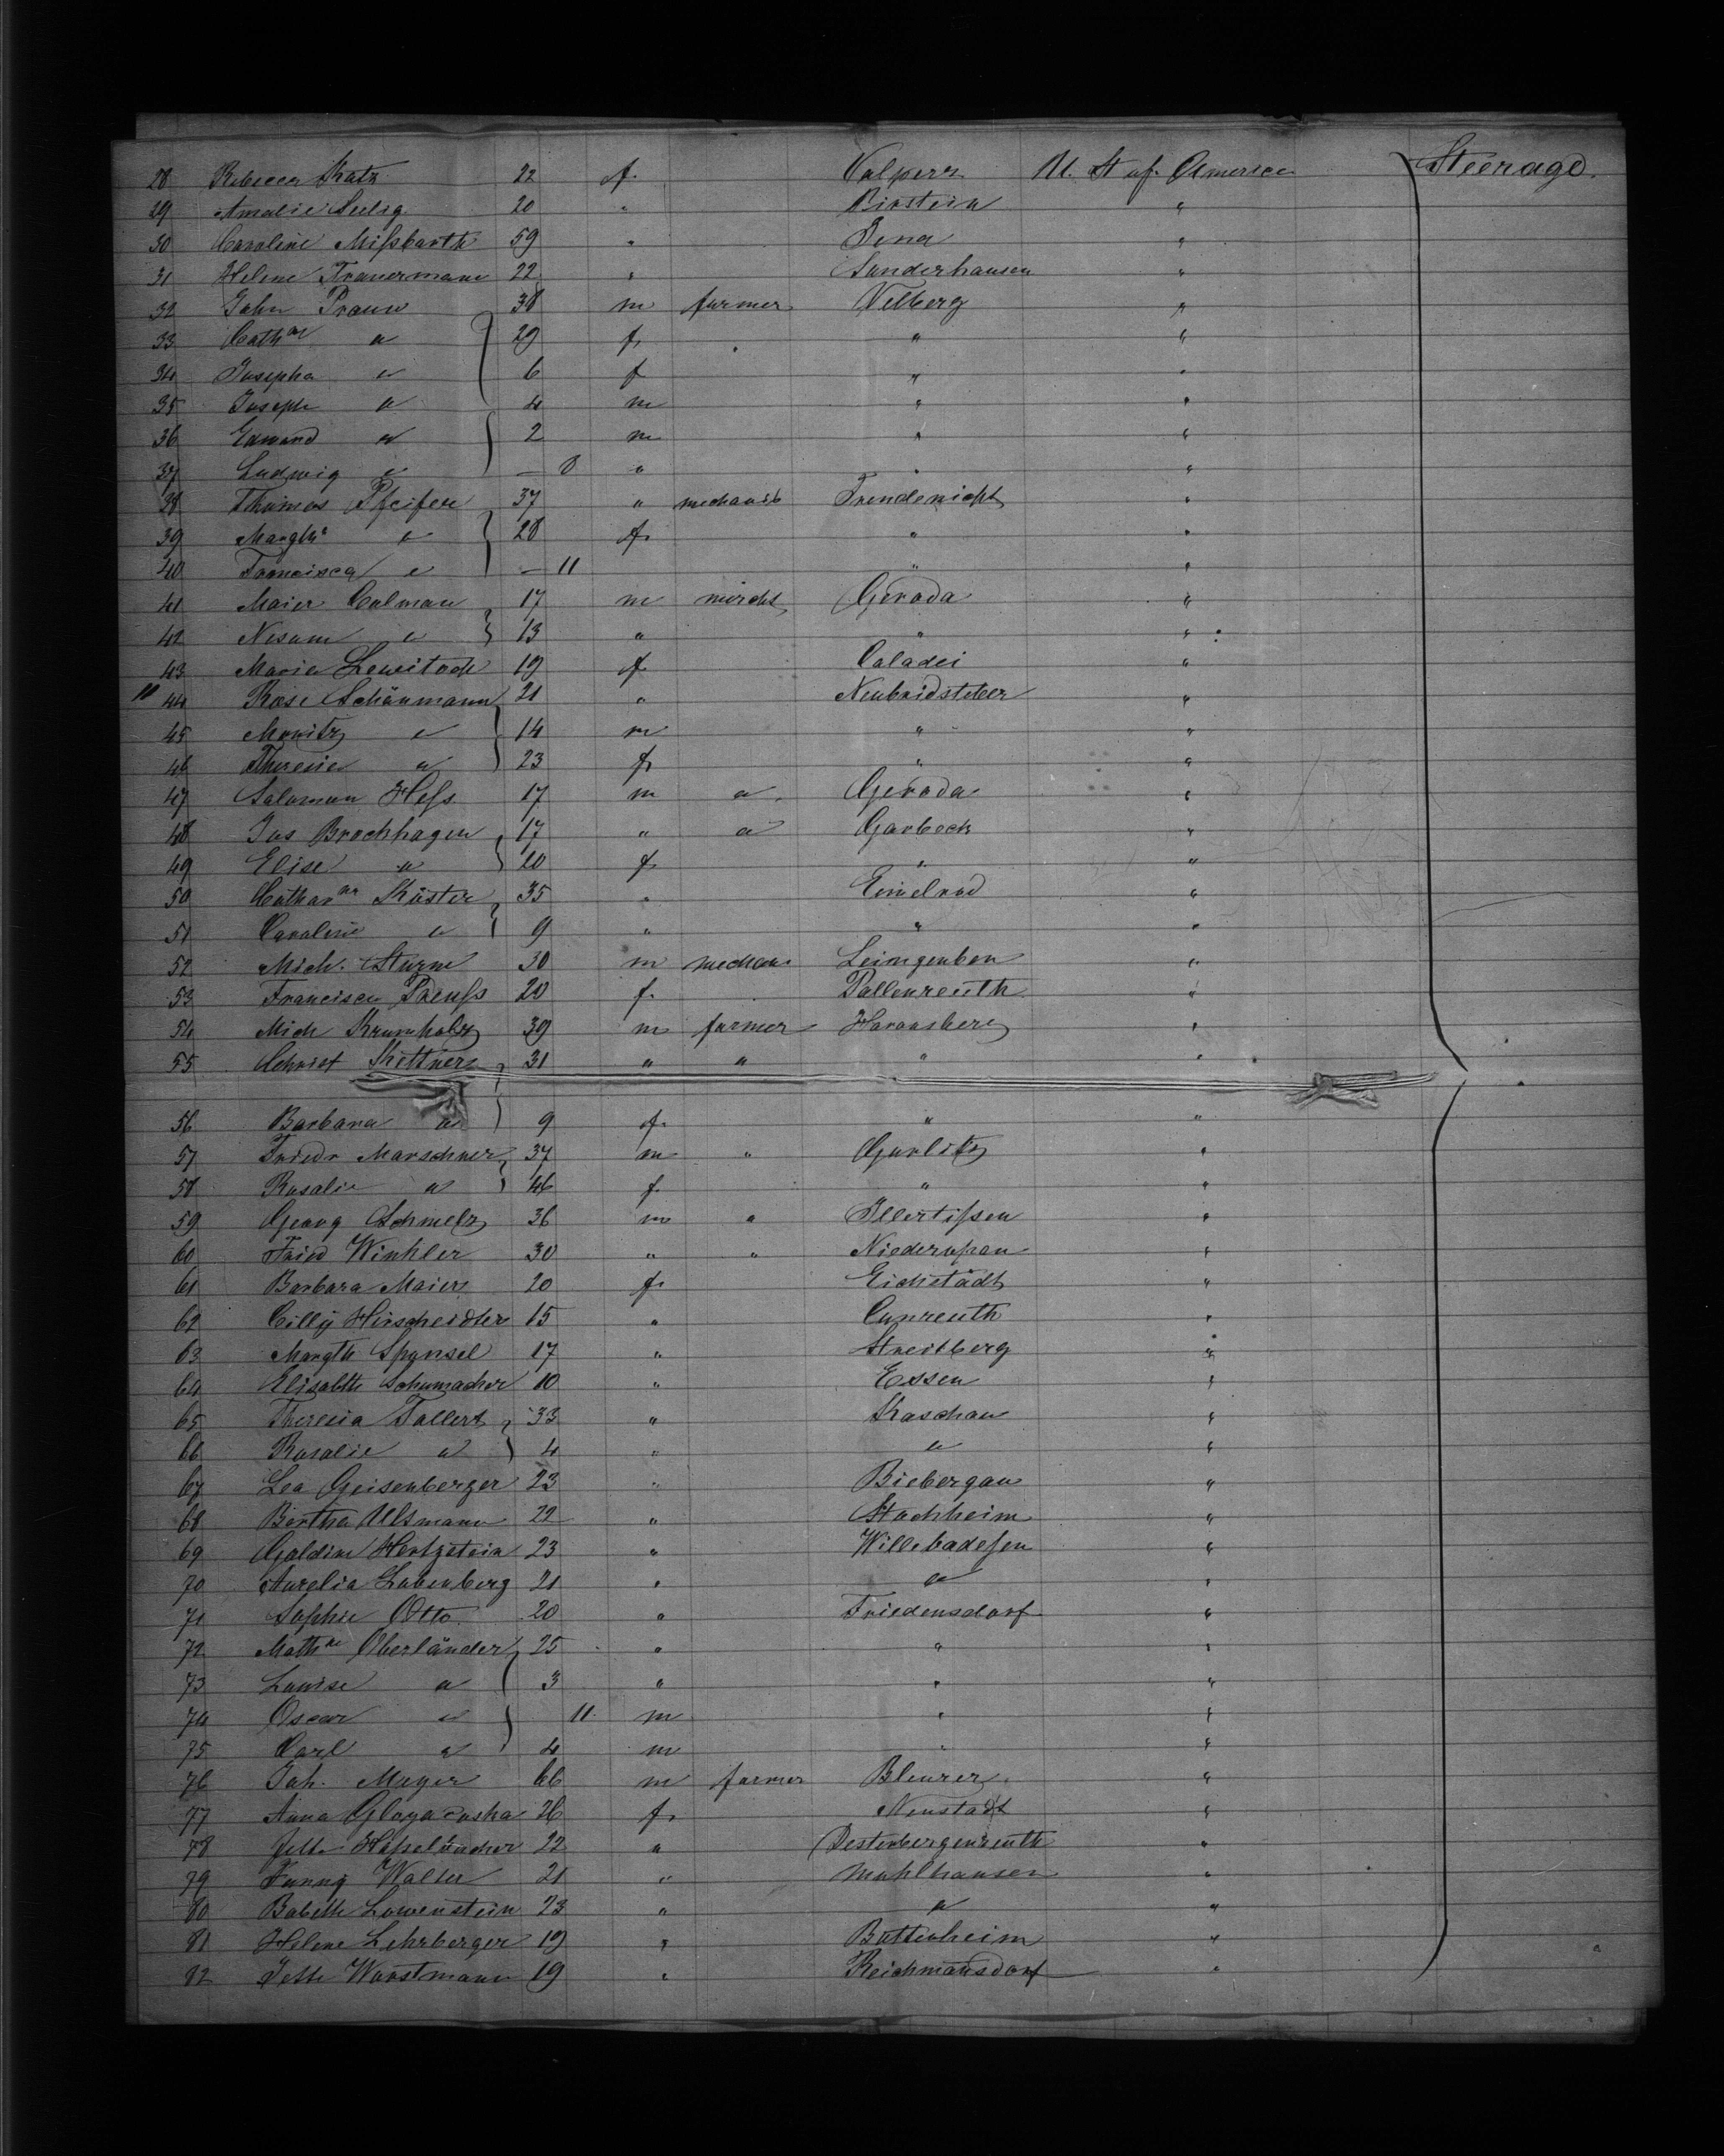 28 Rebecca Katz 22 f. Volperz U. St of. America Steerage.
29 Amalie Seelig 20 " Birstein "
30 Caroline Mißbarth 59 " Jena "
31 Helene Trauermann 22 " Sunderhausen "
32 John Praun 38 m farmer Velberg "
33 Cath " 29 f. " "
34 Josepha " 6 f " "
35 Joseph " 4 m " "
36 Edward " 2 m " "
37 Ludwig " — 8 " " "
38 Thomas Pfeifer 37 " mechanik "
39 Margth " 28 f. " "
40 Francisca " — 11 " "
41 Maier Colman 17 m mercht Geroda "
42 " 13 " " "
43 Marie 19 f Caladei "
44 Rosi Schönmann 21 " "
45 Moritz " 14 m " "
46 Theresia " 23 f. " "
47 Salomon Heß 17 m " Geroda "
48 Jos Brochhagen 17 " " Garbeck "
49 Elise " 20 f " "
50 Cathar Köster 35 " Eimelrod "
51 Caroline " 9 " " "
52 Mich. Sturm 30 m mechan "
53 Francisca Preuß 20 f. Pallenreuth "
54 Mich Krumholz 39 m farmer "
55 Christ Kettner 31 " " " "
56 Barbara " 9 f. " "
57 Friedr Marschner 37 m " Gorlitz "
58 Rosalie " 46 f. " "
59 Georg Schmelz 36 m " Illertißen "
60 Fried Winkler 30 " " "
61 Barbara Maier 20 f. Eichstädt "
62 Cilly 15 " Cunreuth "
63 Margth Sponsel 17 " Streitberg "
64 Elisabth Schumacher 10 " Essen "
65 Theresia Tallert 33 " Kaschau "
66 Rosalie " 4 " " "
67 Lea Geisenberger 23 " Biebergau "
68 Bertha Ulsmann 22 " Stockheim "
69 Goldine Hertzstein 23 " Willebadeßen "
70 Aurelia Lobenberg 21 " " "
71 Sophie Otto 20 " Friedensdorf "
72 Math Oberländer 25 " " "
73 Louise " 3 " " "
74 Oscar " 11 m " "
75 Carl " 4 m " "
76 Joh. Meyer 46 m farmer "
77 Anna 26 f. Neustadt "
78 22 " "
79 Fanny Walter 21 " Muhlhausen "
80 Babette Lowenstein 23 " " "
81 Helene Lehrberger 19 " Buttenheim "
82 Jette Worstmann 19 " Reichmansdorf "